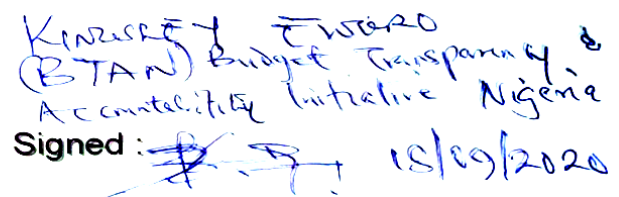 KINGSLEY
(BTAN) Budget Transparency &
Accountability Initiative Nigeria
Signed : 15/09/2020